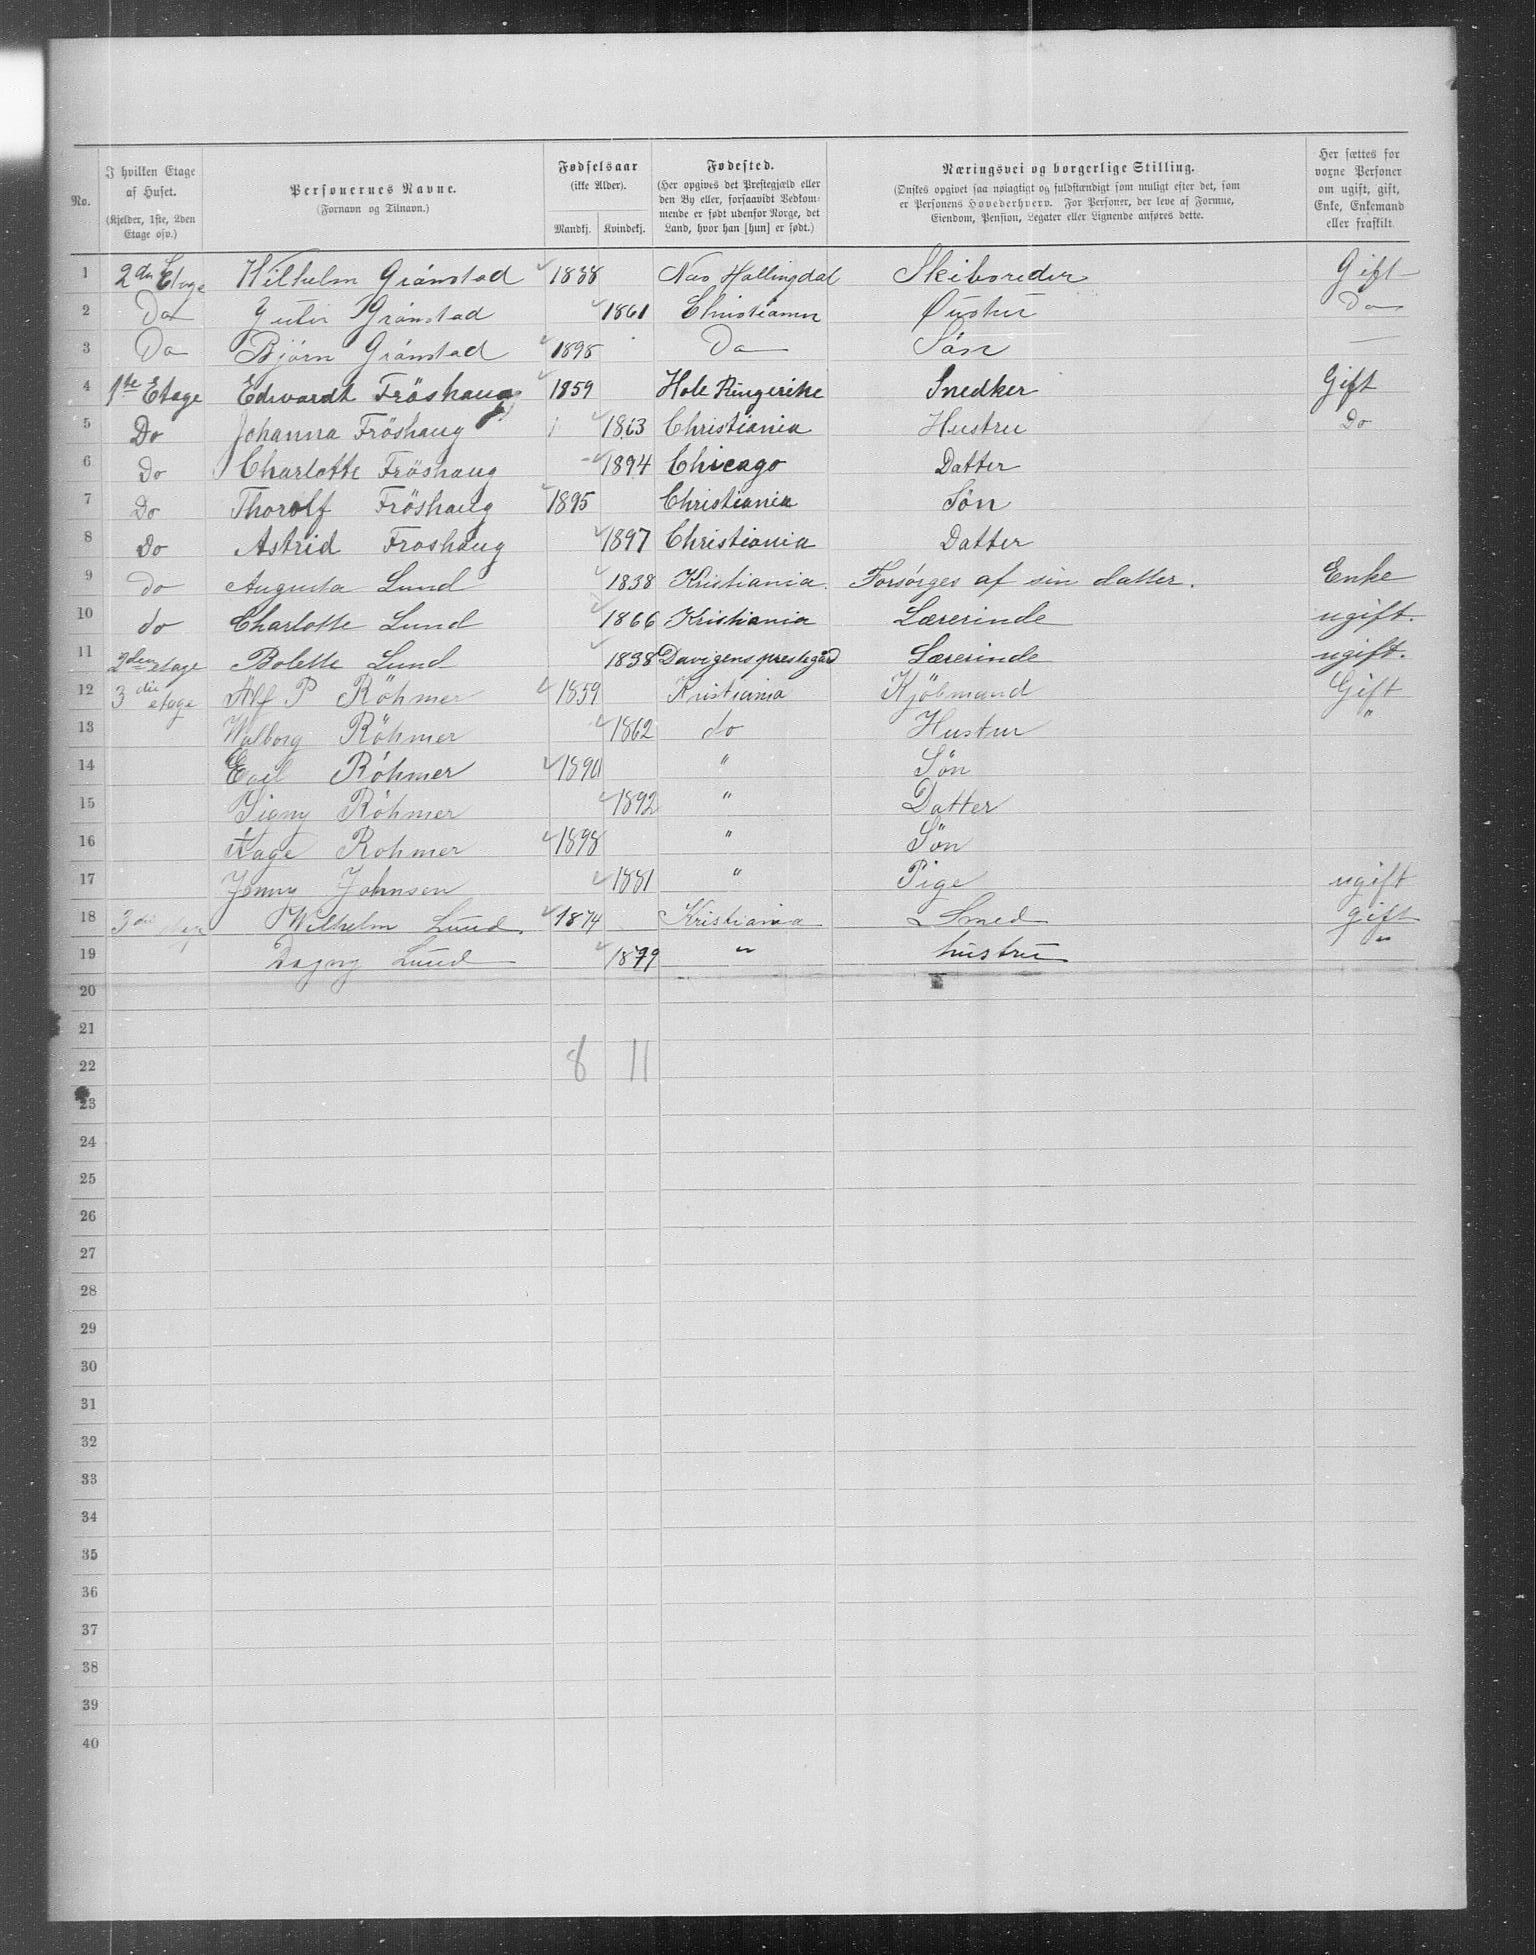 No.
I hvilken Etage af Huset.
(Kjelder, 1ste, 2den Etage osv.)
Personernes Navne.
(Fornavn og Tilnavn.)
Fødselsaar
(ikke Alder).
Mandkj. Kvindekj.
Fødested.
(Her opgives det Prestegjæld eller
den By eller, forsaavidt Vedkom-
mende er født udenfor Norge, det
Land, hvor han [hun] er født.)
Næringsvei og borgerlige Stilling.
(Ønskes opgivet saa nøiagtigt og fuldstændigt som muligt efter det, som
er Personens Hovederhverv. For Personer, der leve af Formue,
Eiendom, Pension, Legater eller Lignende anføres dette.
Her sættes for
voxne Personer
om ugift, gift,
Enke, Enkemand
eller fraskilt.
1 2den Etage Wilhelm Grönstad 1838 Nas Hallingdal Skibsreder Gift
2 Do Grönstad 1861 Christiania Do
3 Do Bjørn Grönstad 1898 Do Søn —
4 1ste Etage Edwardt Fröshaug 1859 Hole Ringerike Snedker Gift
5 Do Johanna Fröshaug 1863 Christiania Hustru Do
6 Do Charlotte Fröshaug 1894 Chicago Datter
7 Do Thorolf Fröshaug 1895 Christiania Sön
8 Do Astrid Froshaug 1897 Christiania Datter
9 do Augusta Lund 1838 Kristiania. Forsørges af sin datter. Enke
10 do Charlotte Lund 1866 Kristiania Lærerinde ugift.
11 2den etage Bolette Lund 1838 Davigens prestegård Lærerinde ugift.
12 3die etage Alf P Röhmer 1859 Kristiania Kjöbmand Gift
13 Walborg Röhmer 1862 do Hustru "
14 Egil Röhmer 1890 " Sön
15 Signy Röhmer 1892 " Datter
16 Aage Rohmer 1898 " Sön
17 Jenny Johnsen 1881 " Pige ugift
18 3die Wilhelm Lund 1874 Kristiania Smed gift
19 Dagny Lund 1879 " hustru "
20
21
22 8 11
23
24
25
26
27
28
29
30
31
32
33
34
35
36
37
38
39
40